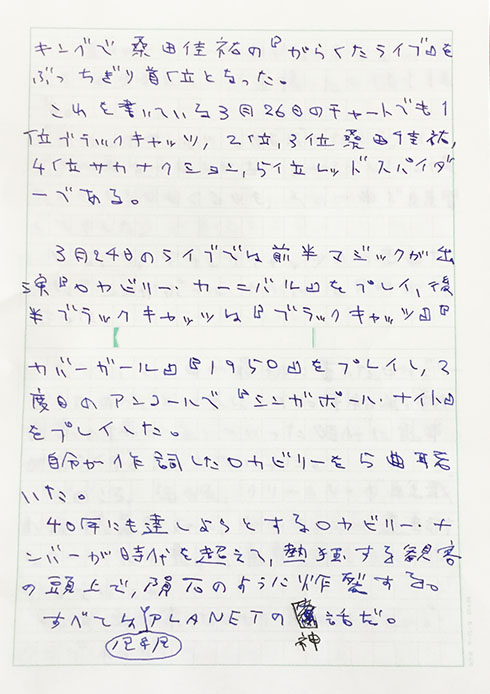 キングで桑田佳祐の『がらくたライブ』を
ぶっちぎり首位となった。
これを書いている3月26日のチャートでも1
位ブラックキャッツ,2位,3位桑田佳祐,
4位サカナクション,5位レッドスパイダ
ーである。
3月24日のライブでは前半マジックが出
演『ロカビリー・カーニバル』をプレイ,後
半ブラックキャッツは『ブラックキャッツ』『
カバーガール』『1950』をプレイし,2
度目のアンコールで『シンガポール・ナイト』
をプレイした。
自分が作詞したロカビリーを5曲聴
いた。
40年にも達しようとするロカビリー・ナ
ンバーが時代を超えて,熱狂する観客
の頭上で,隕石のように炸裂する。
すべてはPLANETの神話だ。